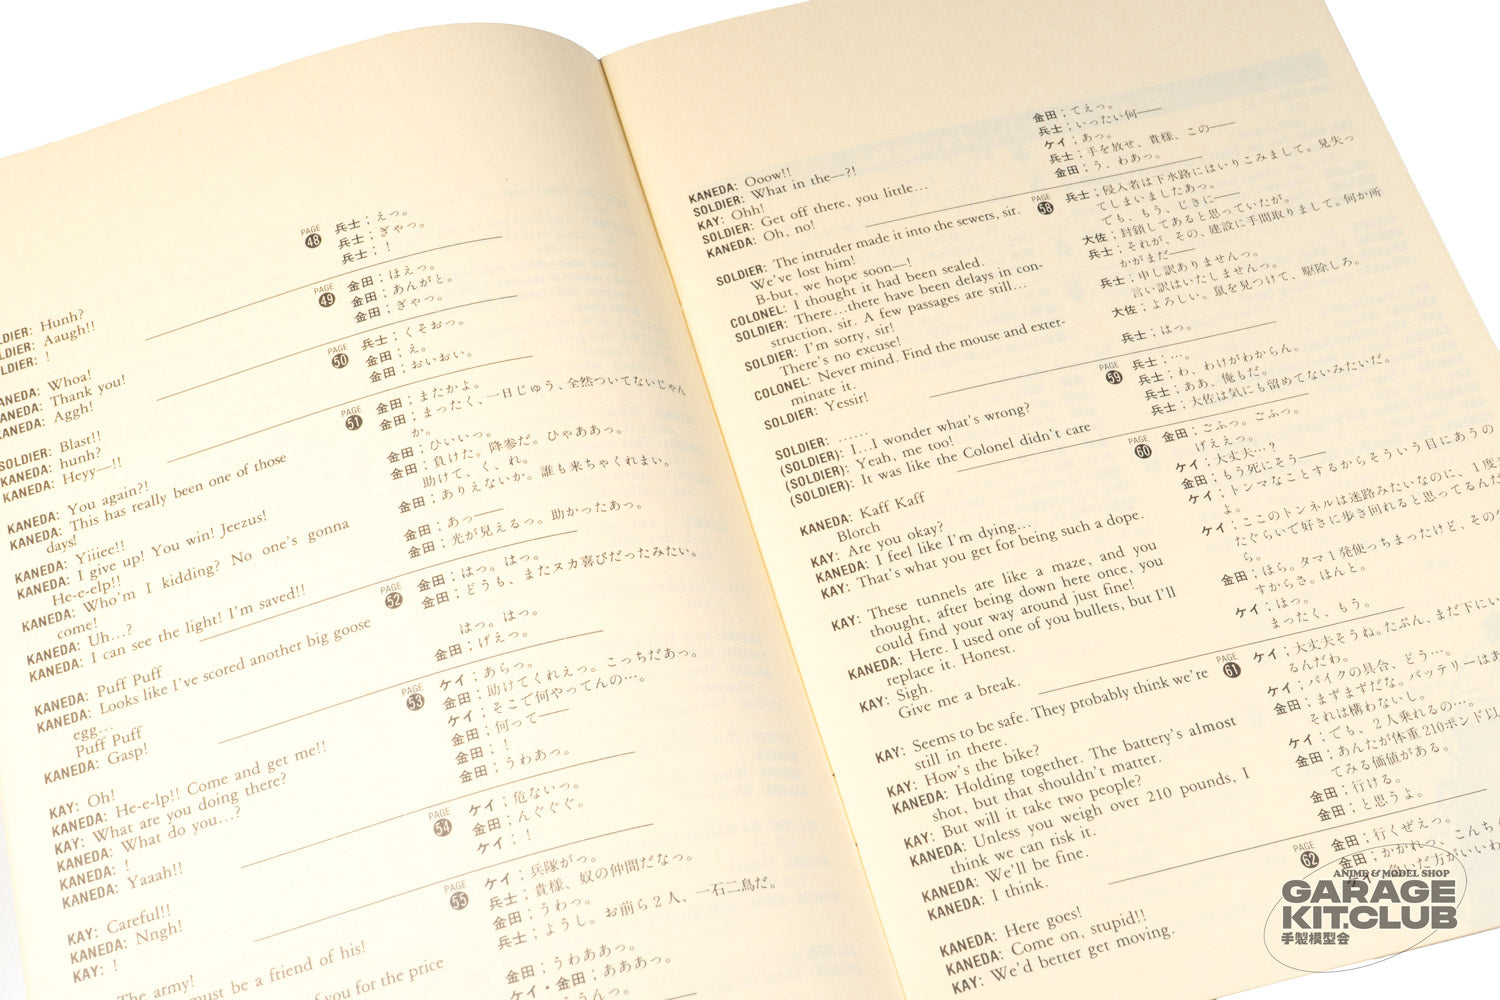 PAGE
48
兵士；えっ。
兵士；ぎゃっ。
兵士；！
PAGE
49
金田；ほえっ。
金田；あんがと。
金田；ぎゃっ。
PAGE
50
兵士；くそおっ。
金田；え。
金田；おいおい。
PAGE
51
金田；またかよ。
金田；まったく、一日じゅう、全然ついてないじゃん
か。
金田；ひいいっ。
金田；負けた。降参だ。ひゃああっ。
助けて、く、れ。
金田；ありえないか。誰も来ちゃくれまい。
金田；あっ——
金田；光が見えるっ。助かったあっ。
PAGE
52
金田；はっ。はっ。
金田；どうも、またヌカ喜びだったみたい。
はっ。はっ。
金田；げえっ。
PAGE
53
ケイ；あらっ。
金田；助けてくれえっ。こっちだあっ。
ケイ；そこで何やってんの…。
金田；何って——
金田；！
金田；うわあっ。
PAGE
54
ケイ；危ないっ。
金田；んぐぐぐ。
ケイ；！
PAGE
55
ケイ；兵隊がっ。
兵士；貴様、奴の仲間だなっ。
金田；うわっ。
兵士；ようし。お前ら２人、一石二鳥だ。
金田；うわああっ。
ケイ・金田；あああっ。
LDIER: Hunh?
LDIER: Aaugh!!
LDIER: !
NEDA: Whoa!
ANEDA: Thank you!
ANEDA: Aggh!
SOLDIER: Blast!!
KANEDA: hunh?
KANEDA: Heyy—!!
KANEDA: You again?!
KANEDA: This has really been one of those
days!
KANEDA: Yiiiee!!
KANEDA: I give up! You win! Jeezus!
He-e-elp!!
KANEDA: Who'm I kidding? No one's gonna
come!
KANEDA: Uh...?
KANEDA: I can see the light! I'm saved!!
KANEDA: Puff Puff
KANEDA: Looks like I've scored another big goose
egg...
Puff Puff
KANEDA: Gasp!
KAY: Oh!
KANEDA: He-e-lp!! Come and get me!!
KAY: What are you doing there?
KANEDA: What do you...?
KANEDA: !
KANEDA: Yaaah!!
KAY: Careful!!
KANEDA: Nngh!
KAY: !
The army!
must be a friend of his!
f you for the price
金田；てえっ。
兵士；いったい何——
ケイ；あっ。
兵士；手を放せ、貴様、この——
金田；う、わあっ。
PAGE
58
兵士；侵入者は下水路にはいりこみまして。見失っ
てしまいましたあっ。
でも、もう、じきに——
大佐；封鎖してあると思っていたが。
兵士；それが、その、建設に手間取りまして。何か所
かがまだ——
兵士；申し訳ありませんっ。
言い訳はいたしませんっ。
大佐；よろしい。鼠を見つけて、駆除しろ。
兵士；はっ。
PAGE
59
兵士；…。
兵士；わ、わけがわからん。
兵士；ああ、俺もだ。
兵士；大佐は気にも留めてないみたいだ。
PAGE
60
金田；ごふっ。ごふっ。
げええっ。
ケイ；大丈夫…？
金田；もう死にそう——
ケイ；トンマなことするからそういう目にあうの
よ。
ケイ；ここのトンネルは迷路みたいなのに、１度
たぐらいで好きに歩き回れると思ってるんだ
ら。
金田；ほら。タマ１発使っちまったけど、その
すからさ。ほんと。
ケイ；ほっ。
まったく、もう。
PAGE
61
ケイ；大丈夫そうね。たぶん、まだ下にい
るんだわ。
ケイ；バイクの具合、どう…。
金田；まずまずだな。バッテリーはあ
それは構わないし。
ケイ；でも、２人乗れるの…。
金田；あんたが体重210ポンド以
てみる価値がある。
金田；行ける。
金田；と思うよ。
PAGE
62
金田；行くぜえっ。
金田；かかれっ、こんち
急いだ方がいいわ
KANEDA: Ooow!!
SOLDIER: What in the—?!
KAY: Ohh!
SOLDIER: Get off there, you little...
KANEDA: Oh, no!
SOLDIER: The intruder made it into the sewers, sir.
We've lost him!
B-but, we hope soon—!
COLONEL: I thought it had been sealed.
SOLDIER: There...there have been delays in con-
struction, sir. A few passages are still...
SOLDIER: I'm sorry, sir!
There's no excuse!
COLONEL: Never mind. Find the mouse and exter-
minate it.
SOLDIER: Yessir!
SOLDIER: ......
(SOLDIER): I...I wonder what's wrong?
(SOLDIER): Yeah, me too!
(SOLDIER): It was like the Colonel didn't care.
KANEDA: Kaff Kaff
Blorch
KAY: Are you okay?
KANEDA: I feel like I'm dying...
KAY: That's what you get for being such a dope.
KAY: These tunnels are like a maze, and you
thought, after being down here once, you
could find your way around just fine!
KANEDA: Here. I used one of you bullets, but I'll
replace it. Honest.
KAY: Sigh.
Give me a break.
KAY: Seems to be safe. They probably think we're
still in there.
KAY: How's the bike?
KANEDA: Holding together. The battery's almost
shot, but that shouldn't matter.
KAY: But will it take two people?
KANEDA: Unless you weigh over 210 pounds, I
think we can risk it.
KANEDA: We'll be fine.
KANEDA: I think.
KANEDA: Here goes!
KANEDA: Come on, stupid!!
KAY: We'd better get moving.
ANIME & MODEL SHOP
GARAGE
KIT.CLUB
手製模型会